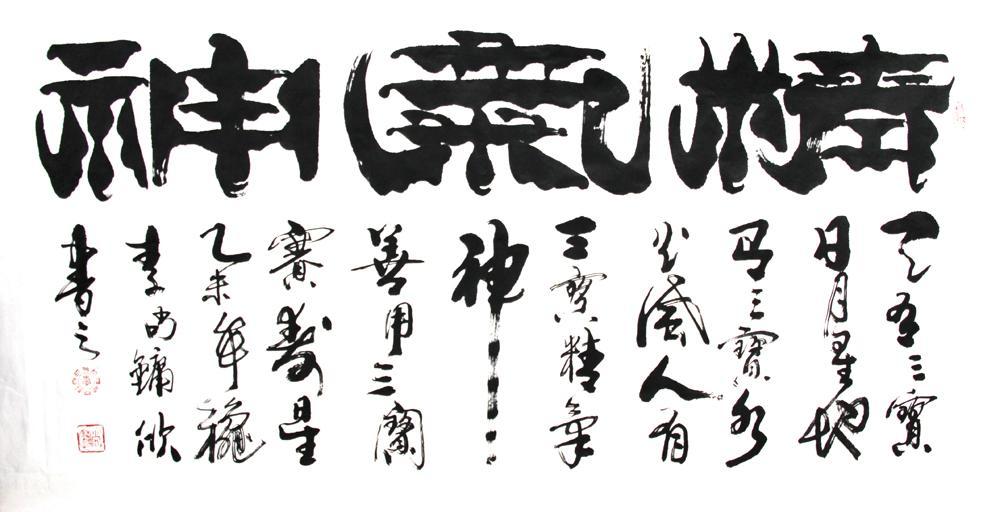 精氣神
天有三寶
日月星地
有三寶水
火風人有
三寶精氣
神
善用三寶
賽壽星
乙未年
李
書之